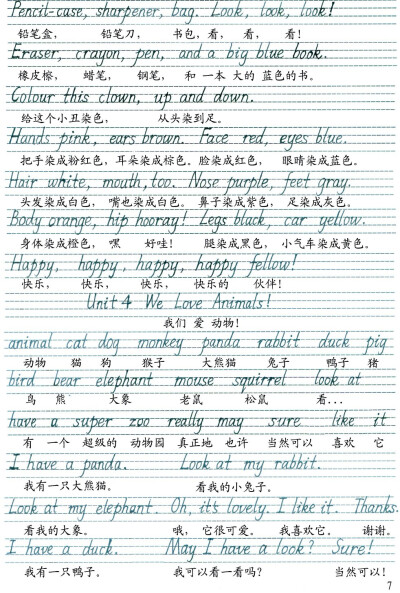 Pencil-case, sharpener, bag. Look, look, look!
铅笔盒, 铅笔刀, 书包, 看, 看, 看!
Eraser, crayon, pen, and a big blue book.
橡皮檫, 蜡笔, 钢笔, 和 一本 大的 蓝色的书。
Colour this clown, up and down.
给这个小丑染色, 从头染到足。
Hands pink, ears brown. Face red, eyes blue.
把手染成粉红色, 耳朵染成棕色。脸染成红色, 眼睛染成蓝色。
Hair white, mouth, too. Nose purple, feet gray.
头发染成白色, 嘴也染成白色。 鼻子染成紫色, 足染成灰色。
Body orange, hip hooray! Legs black, car yellow.
身体染成橙色, 嘿 好哇! 腿染成黑色, 小气车染成黄色。
Happy, happy, happy, happy fellow!
快乐, 快乐, 快乐, 快乐的 伙伴!
Unit 4 We Love Animals!
我们 爱 动物!
animal cat dog monkey panda rabbit duck pig
动物 猫 狗 猴子 大熊猫 兔子 鸭子 猪
bird bear elephant mouse squirrel look at
鸟 熊 大象 老鼠 松鼠 看...
have a super zoo really may sure like it
有 一个 超级的 动物园 真正地 也许 当然可以 喜欢 它
I have a panda. Look at my rabbit.
我有一只大熊猫。 看我的小兔子。
Look at my elephant. Oh, it's lovely. I like it. Thanks.
看我的大象。 哦, 它很可爱。 我喜欢它。 谢谢。
I have a duck. May I have a look? Sure!
我有一只鸭子。 我可以看一看吗? 当然可以!
7